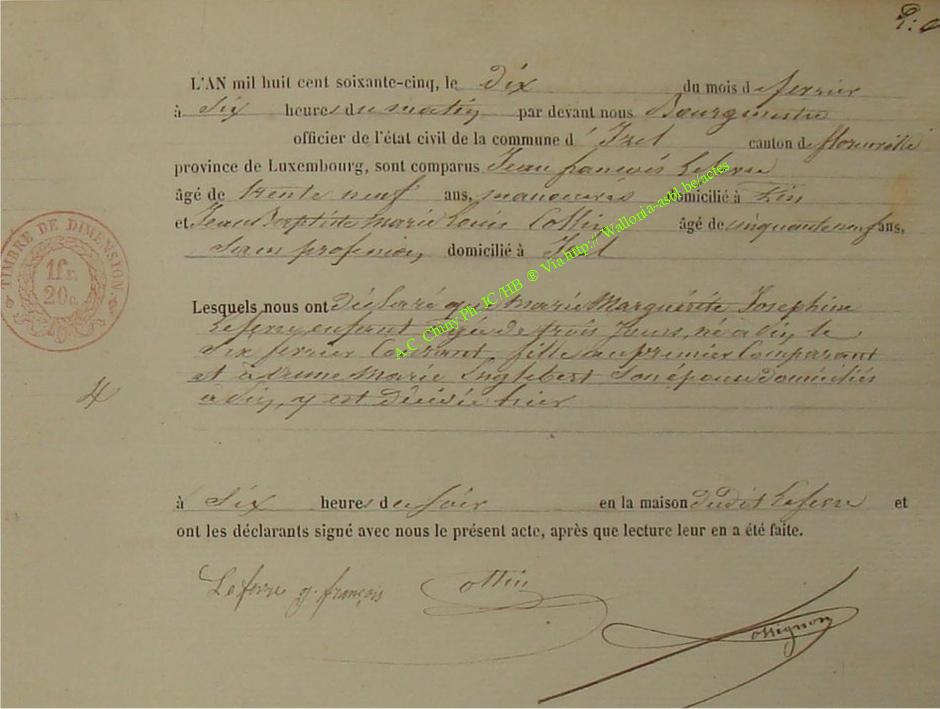 L'AN mil huit cent soixante-cinq, le dix du mois de fevrier
à six heures du matin par devant nous Bourgmestre
officier de l'état civil de la commune d'Izel canton de florenville
province de Luxembourg, sont comparus Jean françois Lefevre
âgé de trente neuf ans, manoeuvre domicilié à
et Jean Baptiste Marie Louis Collin âgé de cinquante neuf ans,
Sans profession, domicilié à Izel
TIMBRE DE DIMENSION
1fr.
20c.
Lesquels nous ont déclaré que Marie Marguérite Josephine
Lefevre, enfant agée de trois Jours, née à le
Six fevrier Courant, fille au premier Comparant
et à Marie Inglebert Son épouse domiciliés
à y est décédée hier
à Six heures du soir en la maison dudit Lefevre et
ont les déclarants signé avec nous le présent acte, après que lecture leur en a été faite.
Lefevre j. françois Collin
ossignon
A-C Chiny Ph: JC/HB ® Via http://Wallonia-asbl.be/actes